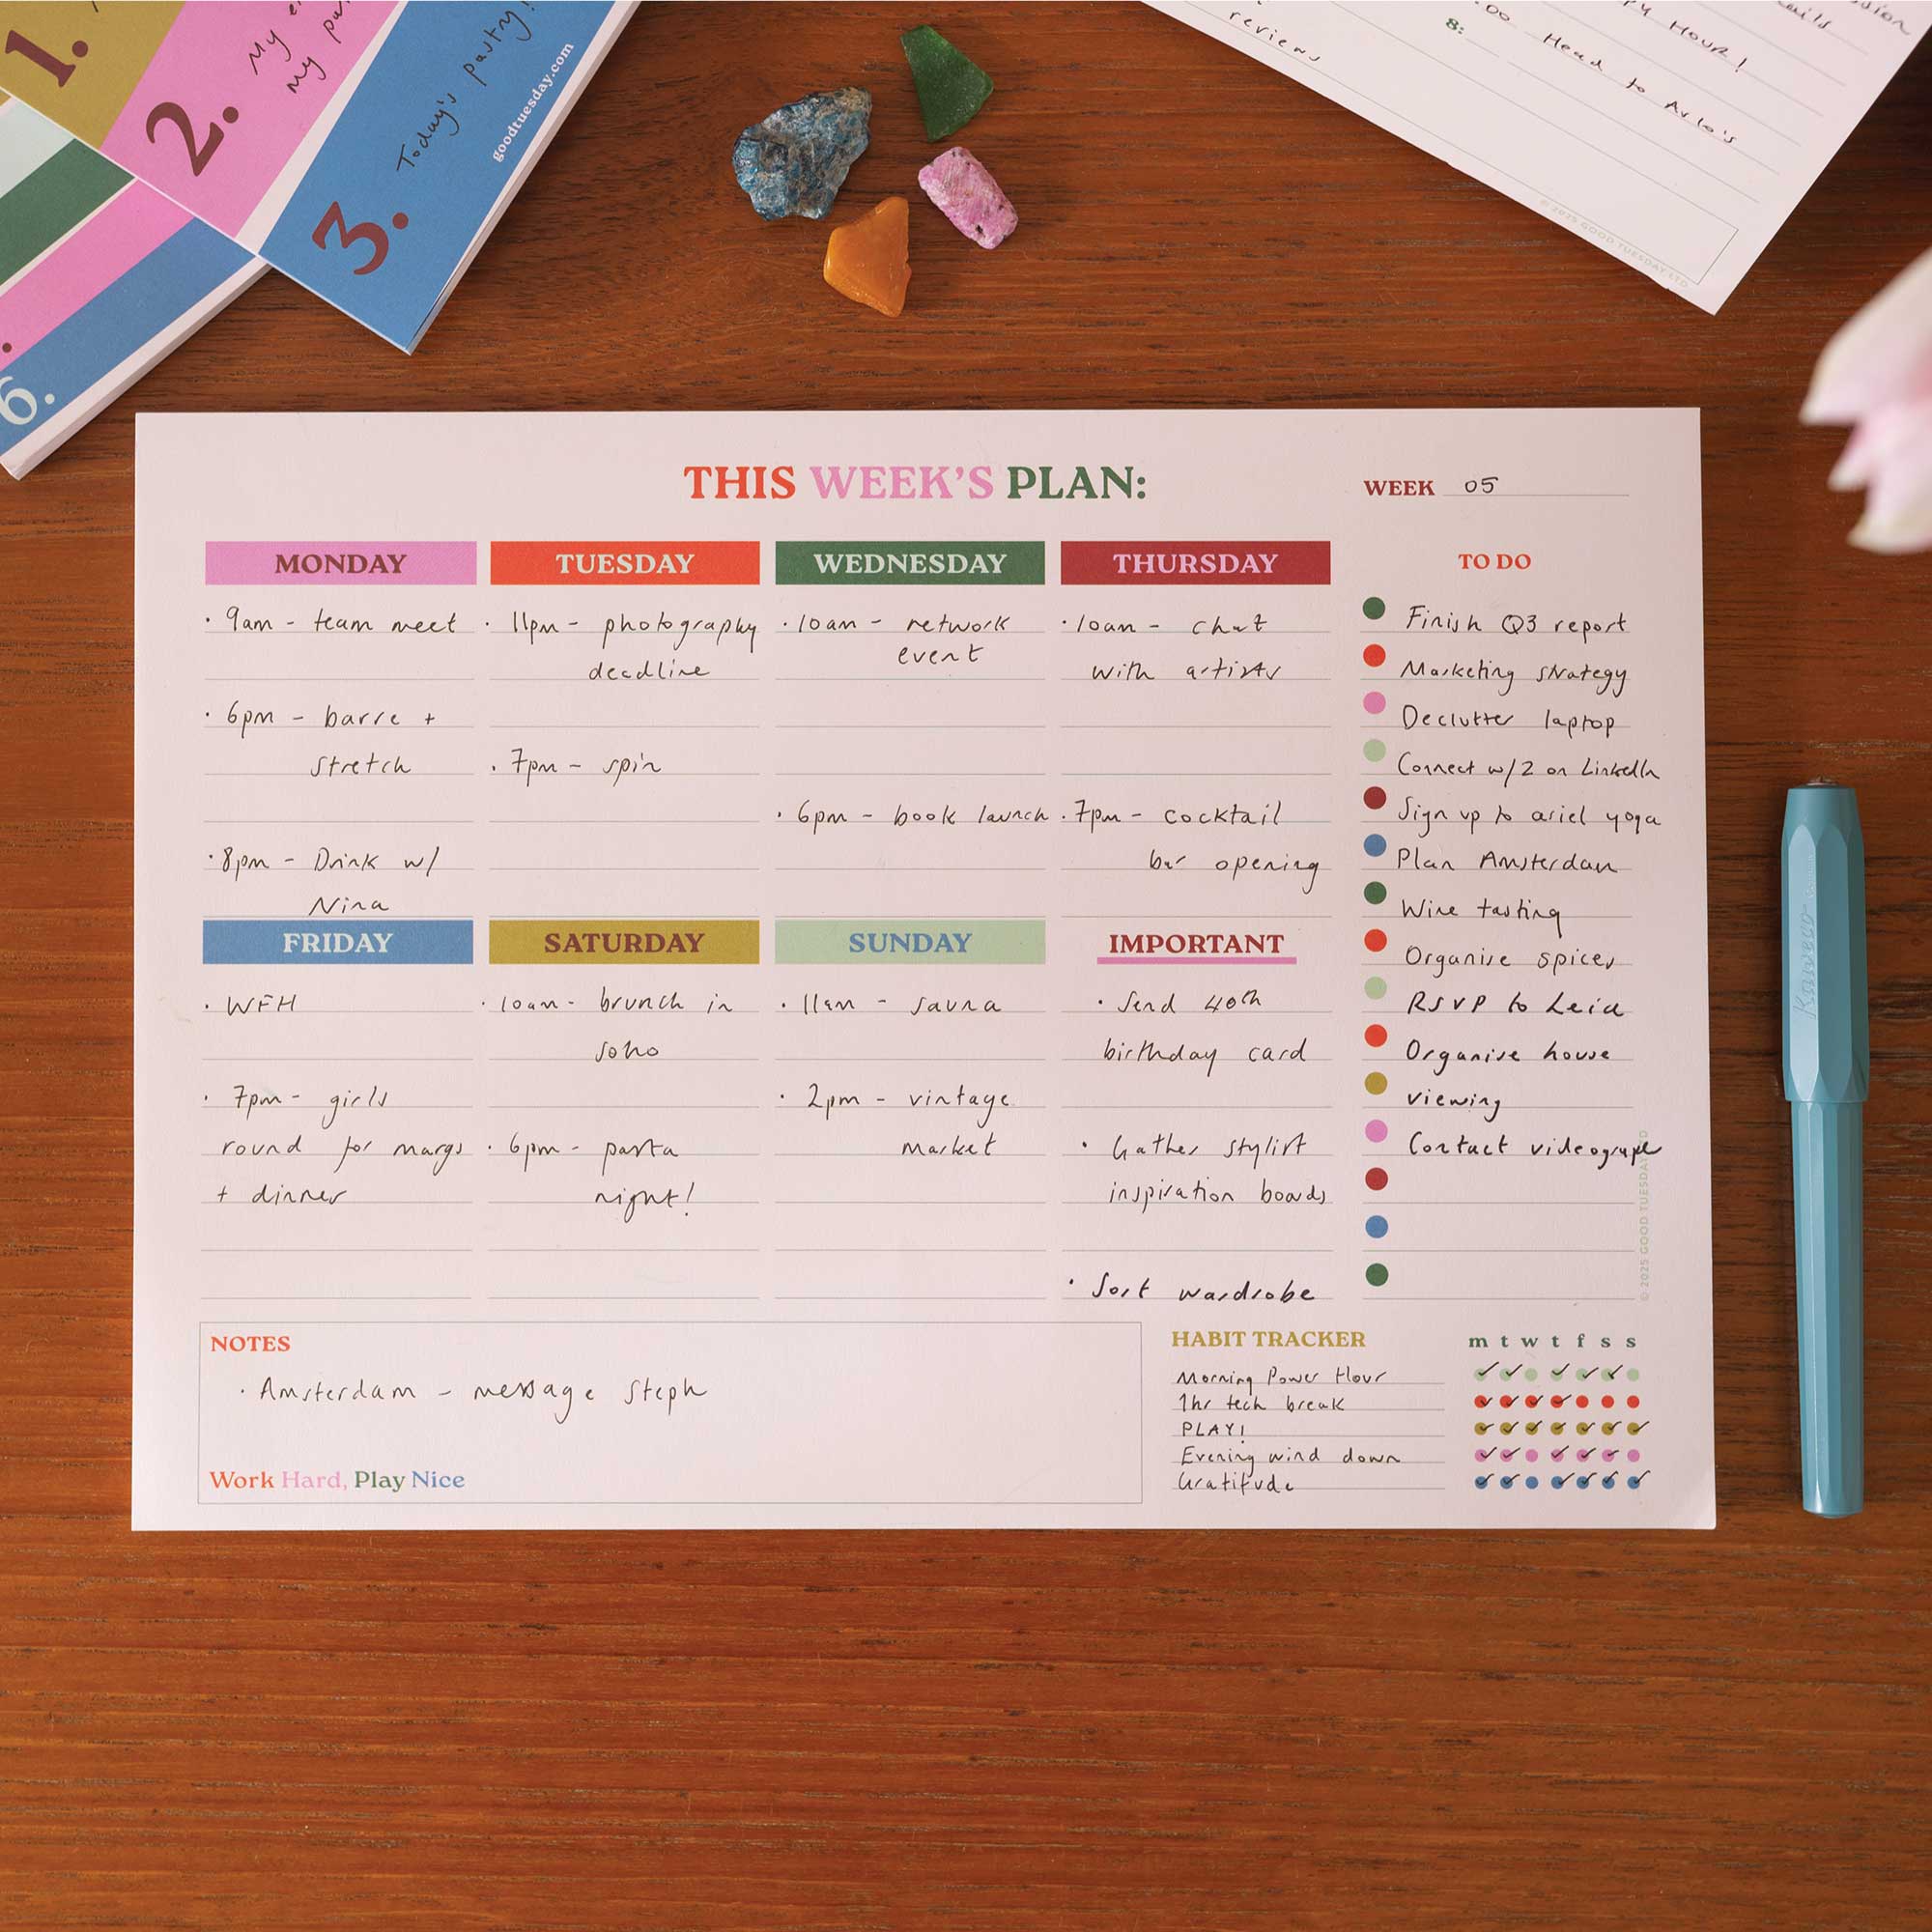 1.
2.
My
My
3.
Today's pastry!
goodtuesday.com
6.
reviews
Hour!
8:
Head to Arlo's
© 2025 GOOD TUESDAY LTD
THIS WEEK'S PLAN:
WEEK 05
MONDAY
· 9am - team meet
· 6pm - barre +
stretch
· 8pm - Drink w/
Nina
TUESDAY
· 11pm - photography
deadline
· 7pm - spin
WEDNESDAY
· 10am - network
event
· 6pm - book launch
THURSDAY
· 10am - chat
with artists
· 7pm - cocktail
bar opening
FRIDAY
· WFH
· 7pm - girls
round for margs
+ dinner
SATURDAY
· 10am - brunch in
soho
· 6pm - pasta
night!
SUNDAY
· 11am - sauna
· 2pm - vintage
market
IMPORTANT
· Send 40th
birthday card
· Gather stylist
inspiration boards
· Sort wardrobe
TO DO
Finish Q3 report
Marketing strategy
Declutter laptop
Connect w/2 on LinkedIn
Sign up to ariel yoga
Plan Amsterdam
Wine tasting
Organise spices
RSVP to Leia
Organise house
viewing
Contact
© 2025 GOOD TUESDAY
NOTES
· Amsterdam - message Steph
Work Hard, Play Nice
HABIT TRACKER
m t w t f s s
Morning Power Hour
1hr tech break
PLAY!
Evening wind down
Gratitude
Kaweco